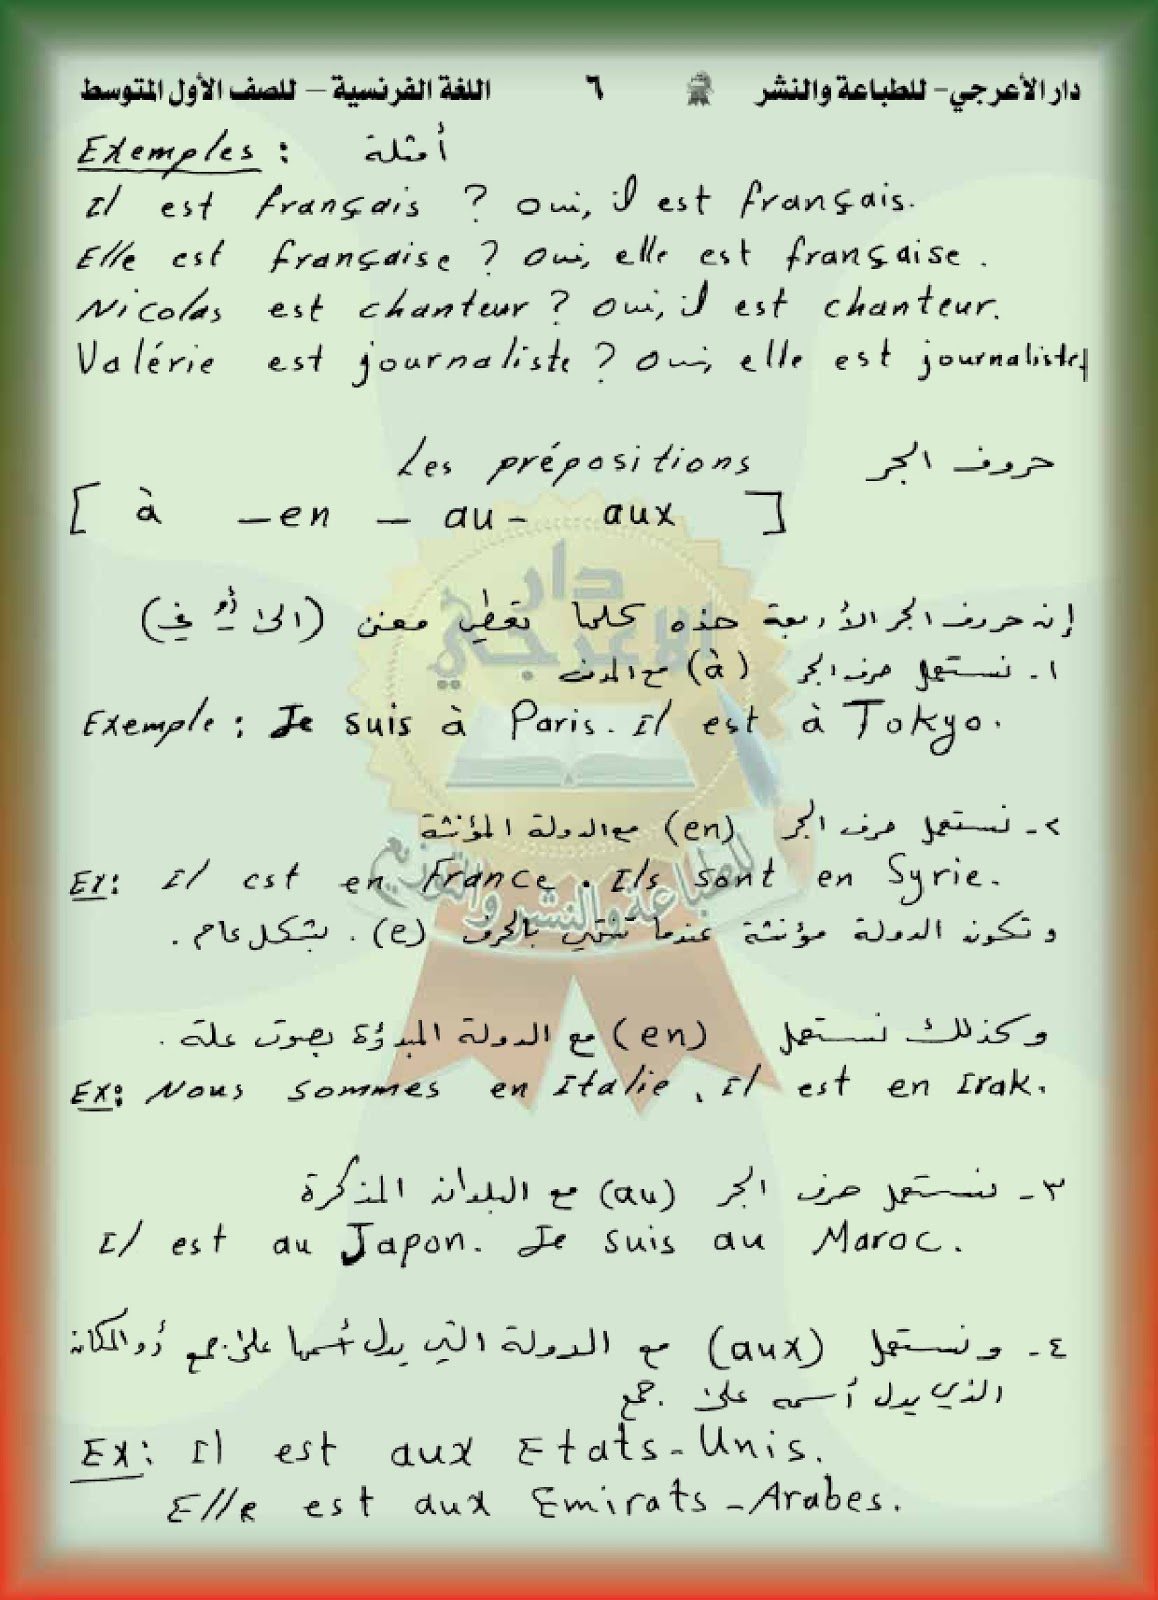 دار الأعرجي- للطباعة والنشر ٦ اللغة الفرنسية – للصف الأول المتوسط
Exemples : أمثلة
Il est français ? Oui, il est français.
Elle est française ? Oui, elle est française.
Nicolas est chanteur ? Oui, il est chanteur.
Valérie est journaliste ? Oui, elle est journaliste
Les prépositions حروف الجر
[ à – en – au – aux ]
إن حروف الجر الأربعة هذه كلها تعطي معنى (الى أو في)
١- نستعمل حرف الجر (à) مع المدن
Exemple : Je suis à Paris. Il est à Tokyo.
٢- نستعمل حرف الجر (en) مع الدولة المؤنثة
Ex: Il est en France. Ils sont en Syrie.
وتكون الدولة مؤنثة عندما تنتهي بالحرف (e). بشكل عام.
وكذلك نستعمل (en) مع الدولة المبدؤة بصوت علة.
Ex: Nous sommes en Italie, Il est en Irak.
٣- نستعمل حرف الجر (au) مع البلدان المذكرة
Il est au Japon. Je suis au Maroc.
٤- ونستعمل (aux) مع الدولة التي يدل أسمها على جمع أو المكان
الذي يدل أسمه على جمع
Ex: Il est aux Etats-Unis.
Elle est aux Emirats-Arabes.
دار
الاعرجي
للطباعة والنشر والتوزيع